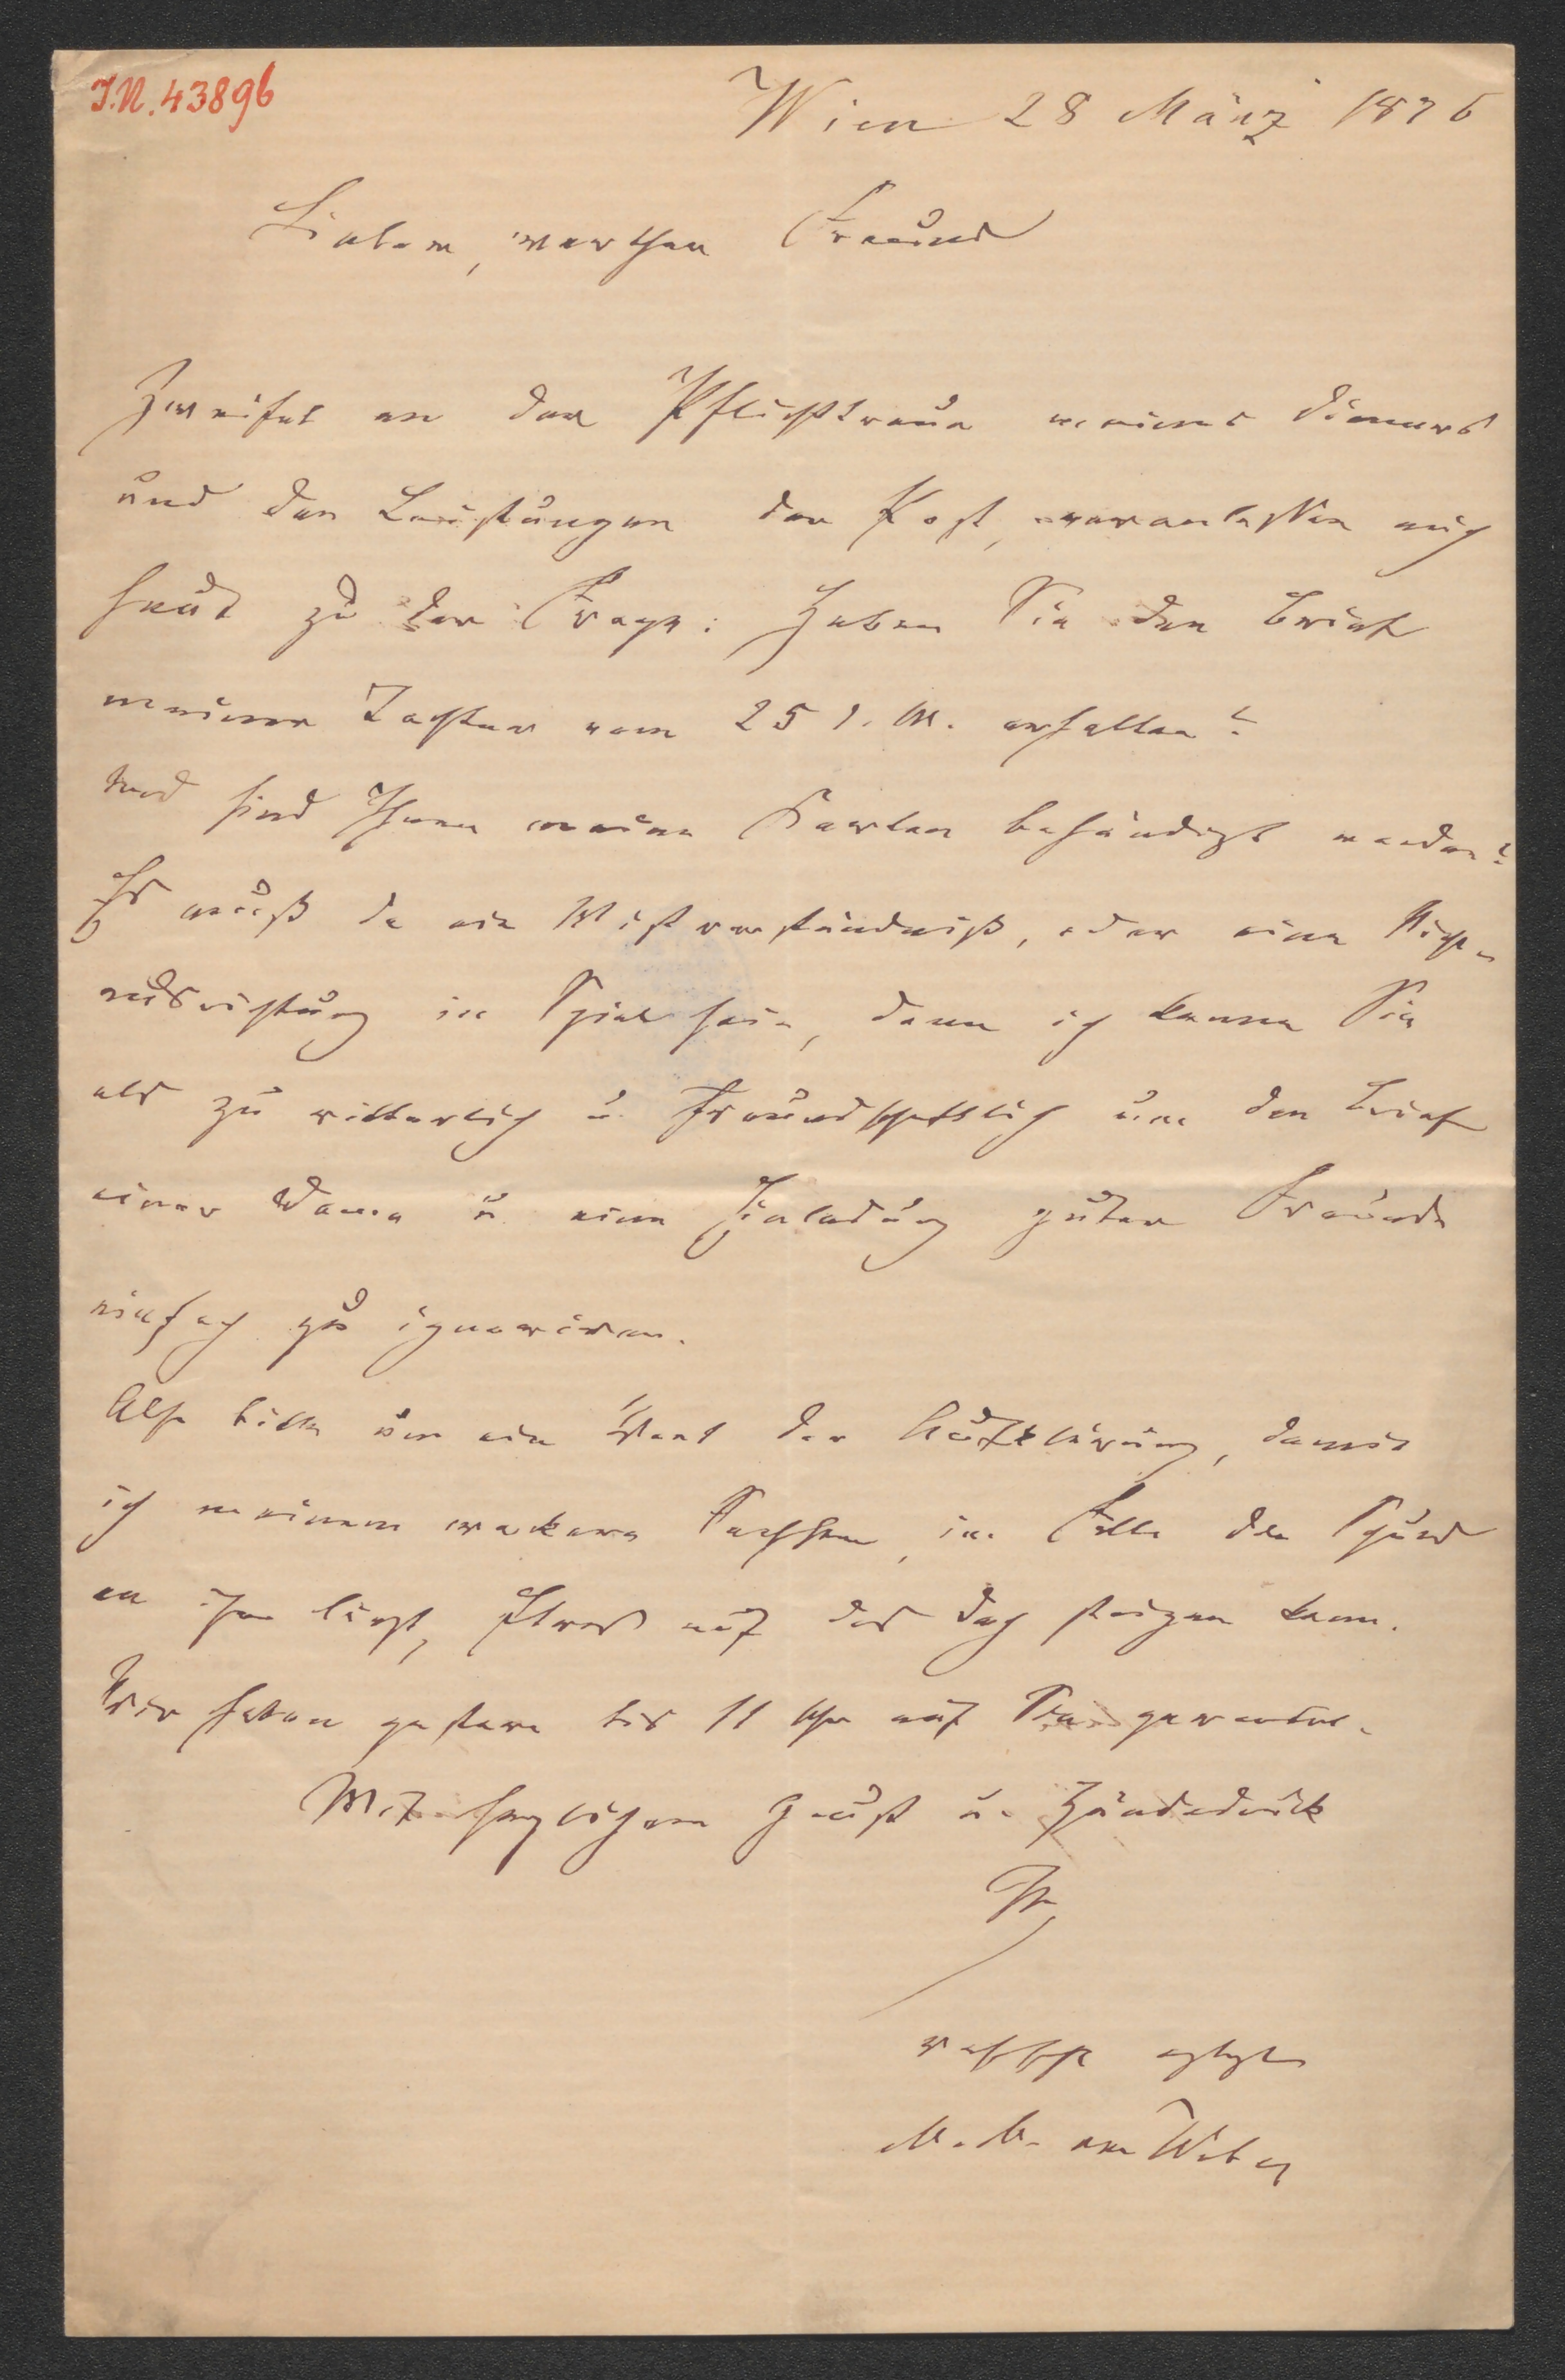 I.N. 43896
Wien 28 März 1876
Lieber, werther Freund
Zweifel an der Pflichttreue meines Dieners
und den Leistungen der Post, veranlassen mich
heut zu der Frage: Haben Sie den Brief
meiner Tochter vom 25 d. M. erhalten?
Und sind Ihnen meine Karten behändigt worden?
Es muß da ein Mißverständniß, oder eine Nicht-
ausrichtung im Spiel sein, denn ich kenne Sie
als zu ritterlich u. freundschaftlich um den Brief
einer Dame u. eine Einladung guter Freunde
einfach zu ignoriren.
Also bitte um ein Wort der Aufklärung, damit
ich meinem wackern Sachsen, im Falle die Schuld
an ihm liegt, Etwas auf das Dach steigen kann.
Wir haben gestern bis 11 Uhr auf Sie gewartet.
Mit herzlichem Gruß u. Händedruck
Ihr
ergebner
M. M. von Weber